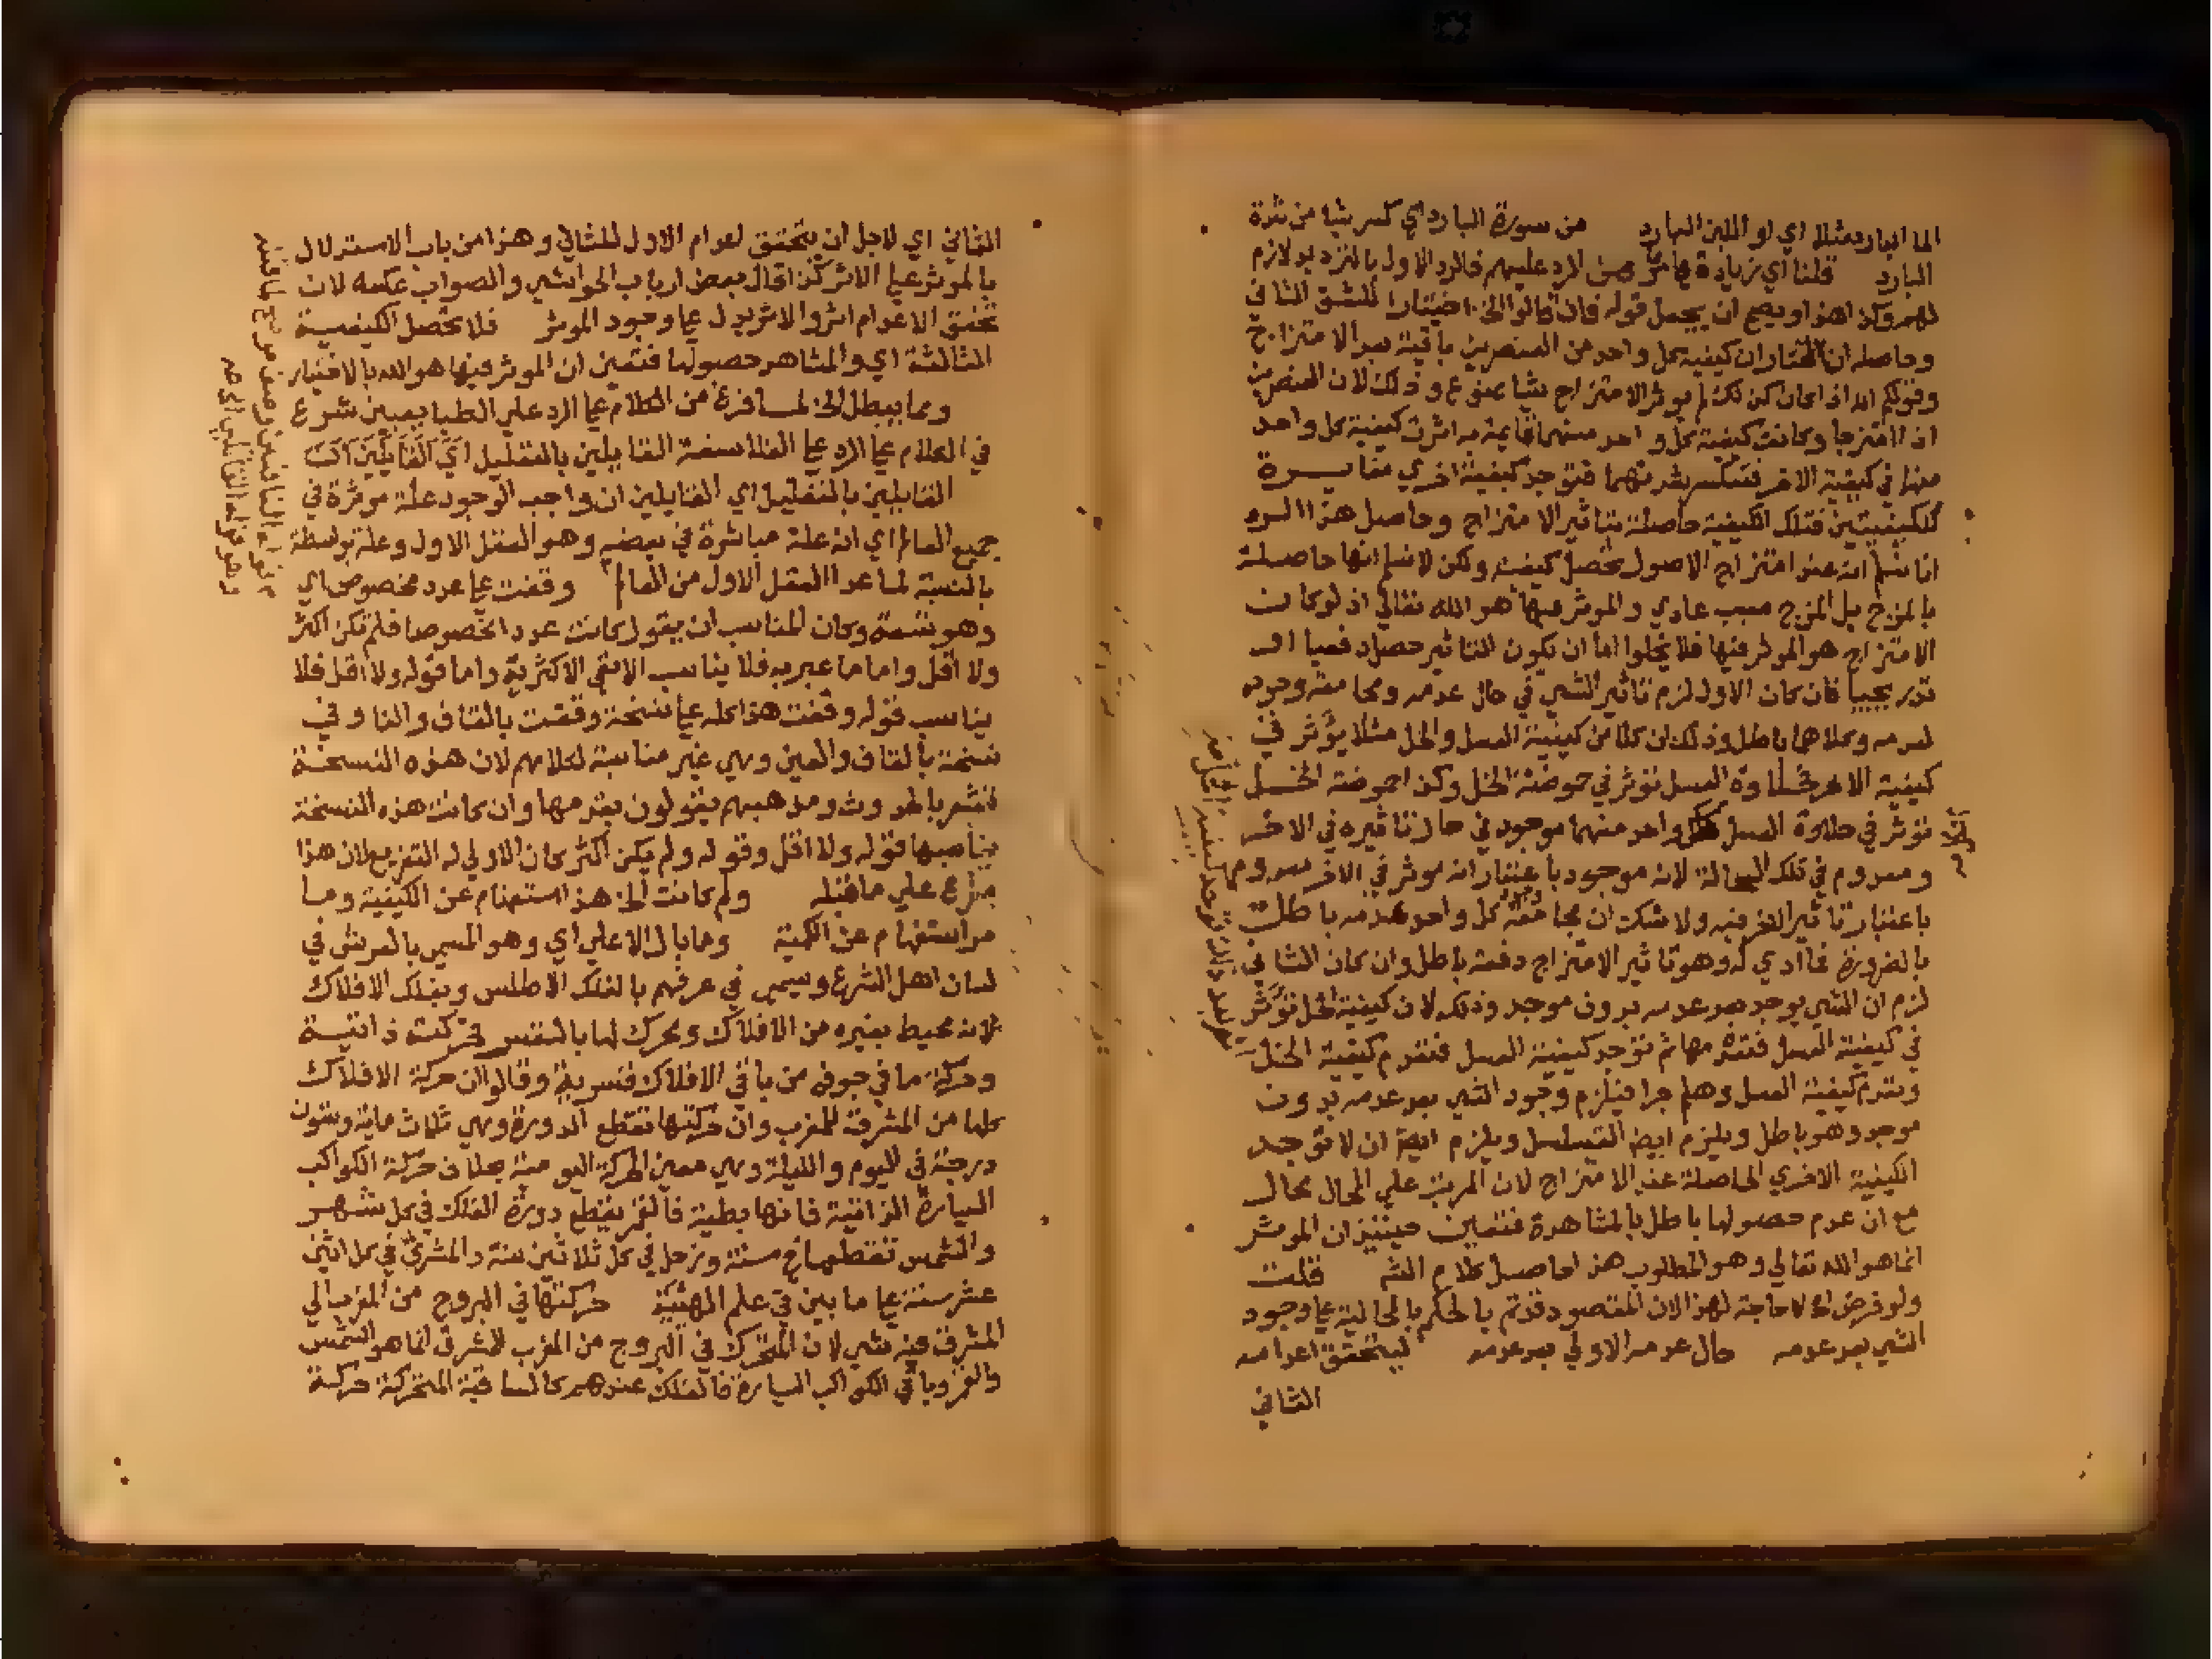 الما البارد مثلا اي او اللبن البارد من سورة البارد اي كسر شيا من شدة
البارد قلنا اي زيادة الرد عليهم فالرد الاول بالترديد لازم
لهم وكذا هذا ويصح ان يجعل قوله فان قالوا الخ اختيارا للشق الثاني
وحاصله ان نختار ان كيفية كل واحد من العنصرين باقية بعد الامتزاج
وقولكم انه اذا كان كذلك لم يوثر الامتزاج شيا ممنوع وذلك لان العنصرين
اذا امتزجا وكانت كيفية كل واحد منهما قايمة به اثرت كيفية كل واحد
منهما في كيفية الاخر فتنكسر شدتهما فتوجد كيفية اخري مغايرة
للكيفيتين فتلك الكيفية حاصلة بتاثير الامتزاج وحاصل هذا الرد
انا نسلم انه عند امتزاج الاصول تحصل كيفية ولكن لا نسلم انها حاصلة
بالمزج بل المزج سبب عادي والموثر فيها هو الله تعالي اذ لو كانت
الامتزاج هو الموثر فيها فلا يخلوا اما ان يكون التاثير حصل دفعيا او
تدريجيا فان كان الاول لزم تاثير الشي في حال عدمه ومجامعة وجوده
لعدمه وكلاهما باطل وذلك لان كلا من كيفية العسل والخل مثلا يؤثر في
كيفية الاخر فحلاوة العسل توثر في حموضة الخل وكذا حموضة الخل
توثر في حلاوة العسل فكل واحد منهما موجود في حال تاثيره في الاخر
ومعدوم في تلك الحالة لانه موجود باعتبار انه موثر في الاخر ومعدوم
باعتبار تاثير الاخر فيه ولا شك ان مجامعة وجود كل واحد لعدمه باطلة
بالضرورة فما ادي له وهو تاثير الامتزاج دفعة باطل وان كان الثاني
لزم ان الشي يوجد بعد عدمه بدون موجد وذلك لان كيفية الخل تؤثر
في كيفية العسل فتعدمها ثم توجد كيفية العسل فتعدم كيفية الخل
وتعدم كيفية العسل وهلم جرا فيلزم وجود الشي بعد عدمه بدون
موجد وهو باطل ويلزم ايضا التسلسل ويلزم ايضا ان لا توجد
الكيفية الاخري الحاصلة عند الامتزاج لان المرتب علي المحال محال
مع ان عدم حصولها باطل بالمشاهدة فتعين حينيذ ان الموثر
انما هو الله تعالي وهو المطلوب هذا حاصل كلام الش قلت
ولو فرض الخ لا حاجة لهذا لان المقصود قد تم بالحكم بالمحالية علي وجود
الشي بعد عدمه حال عدمه الاولي بعد عدمه ليتحقق اعدامه
الثاني
الثاني اي لاجل ان يتحقق اعدام الاول للثاني وهذا من باب الاستدلال
بالموثر علي الاثر كذا قال بعض ارباب الحواشي والصواب عكسه لان
تحقق الاعدام اثر والاثر يدل علي وجود الموثر فلا تحصل الكيفية
الثالثة اي والمشاهد حصولها فتعين ان الموثر فيها هو الله بالاختيار
ومما يبطل الخ لما فرغ من الكلام علي الرد علي الطبايعيين شرع
في الكلام علي الرد علي الفلاسفة القايلين بالتعليل اي القايلين
القايلين بالتعليل اي القايلين ان واجب الوجود علة موثرة في
جميع العالم اي انه علة مباشرة في بعضه وهو العقل الاول وعلة بواسطة
بالنسبة لما عدا العقل الاول من العالم وقفت علي عدد مخصوص اي
وهو تسعة وكان المناسب ان يقول كانت عددا مخصوصا فلم تكن اكثر
ولا اقل واما ما عبر به فلا يناسب الا نفي الاكثرية واما قوله ولا اقل فلا
يناسب قوله وقفت هذا كله علي نسخة وقفت بالقاف والفا وفي
نسخة بالقاف والعين وهي غير مناسبة لكلامهم لان هذه النسخة
تشعر بالحدوث ومذهبهم يقولون بقدمها وان كانت هذه النسخة
يناسبها قوله ولا اقل وقوله ولم يكن اكثر كان الاولي له التفريع لان هذا
مفرع علي ما قبله ولم كانت الخ هذا استفهام عن الكيفية وما
مر استفهام عن الكمية وما بال الاعلي اي وهو المسمي بالعرش في
لسان اهل الشرع ويسمي في عرفهم بالفلك الاطلس وبفلك الافلاك
لانه محيط بغيره من الافلاك ومحرك لها بالنفس فحركته ذاتية
وحركة ما في جوفه من باقي الافلاك قسرية وقالوا ان حركة الافلاك
كلها من المشرق للمغرب وان حركتها تقطع الدورة وهي ثلاث ماية وستون
درجة في اليوم والليلة وهي معني الحركة اليومية بخلاف حركة الكواكب
السيارة الذاتية فانها بطيئة فالقمر يقطع دورة الفلك في كل شهر
والشمس تقطعها في سنة وزحل في كل ثلاثين سنة والمشتري في كل اثني
عشر سنة علي ما بين في علم الهيئة حركتها في البروج من المغرب الي
المشرق فيه شي لان المتحرك في البروج من المغرب للمشرق انما هو الشمس
والقمر وباقي الكواكب السيارة فالفلك عندهم كالساقية المتحركة حركة